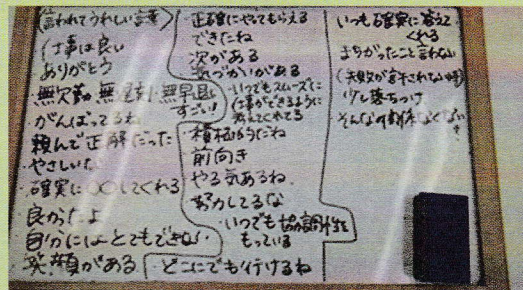 〈言われてうれしい言葉〉
仕事は良い
ありがとう
無欠勤 無遅刻 無早退
すごい!
がんばってるね
頼んで正解だった
やさしいな
確実に〇〇してくれる
良かったよ
自分にはとてもできない
笑顔がある
正確にやってもらえる
できたね
次がある
気づかいがある
・いつもスムーズに
仕事ができるように
考えてくれてる
積極的だね
前向き
やる気あるね
努力してるな
・いつでも協調性を
もっている
・どこにでも行けるね
いつも確実に答えて
くれる
まちがったこと言わない
(失敗が許されない時)
少し落ちつけ
そんなの関係なくない